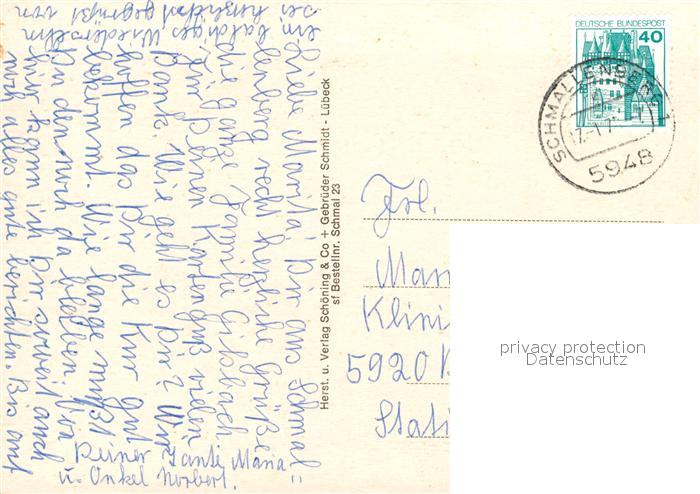 Liebe Marita! Dir aus Schmal=
lenberg recht herzliche Grüße
die ganze Familie Gischbach
für Deinen Kartengruß vielen
Dank. Wie geht es Dir? Wir
hoffen das Dir die Kur gut
bekommt. Wie lange mußt
Du denn noch da bleiben. Von
hier kann ich Dir soweit auch
noch alles gute berichten. Bis auf
ein baldiges Wiedersehn
sei herzlichst gegrüßt von
Deiner Tante Maria
u. Onkel Norbert.
Herst. u. Verlag Schöning & Co + Gebrüder Schmidt - Lübeck
sf Bestellnr. Schmal 23
DEUTSCHE BUNDESPOST
40
SCHMALLENBERG 1
5948
Frl.
Klini
5920
Stati
privacy protection
Datenschutz